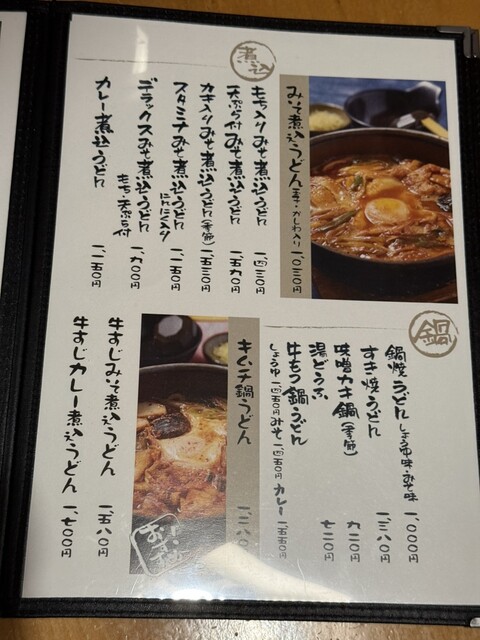 煮込
みそ煮込うどん 玉子・かしわ入り 一、〇三〇円
もち入りみそ煮込うどん 一、四三〇円
天ぷら付みそ煮込うどん 一、五九〇円
カキ入りみそ煮込うどん(季節) 一、五三〇円
スタミナみそ煮込うどん にんにく入り 一、一五〇円
デラックスみそ煮込うどん もち・天ぷら付 一、九〇〇円
カレー煮込うどん 一、一五〇円
鍋
鍋焼うどん しょうゆ味・みそ味 一、〇〇〇円
すき焼うどん 一、三八〇円
味噌カキ鍋(季節) 九二〇円
湯どうふ 七二〇円
牛もつ鍋うどん
しょうゆ 一、四五〇円 みそ 一、四五〇円 カレー 一、五五〇円
キムチ鍋うどん
牛すじみそ煮込うどん 一、五八〇円
牛すじカレー煮込うどん 一、七〇〇円